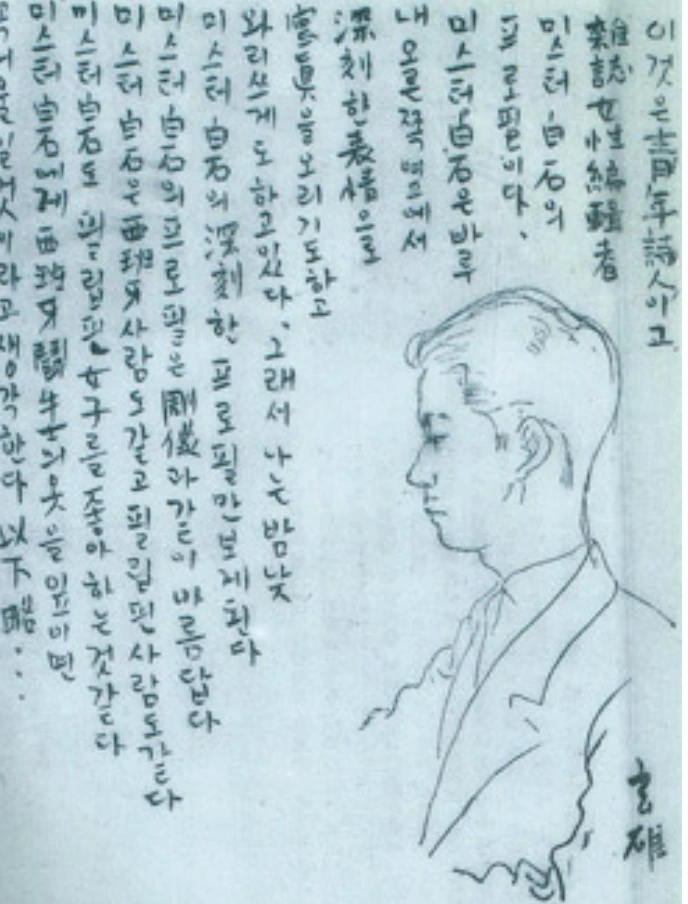 이것은 靑年詩人이고
雜誌女性編輯者
미스터 白石의
프로필이다.
미스터 白石은 바루
내 오른쪽 옆에서
深刻한 表情으로
寫眞을 오리기도하고
와리쓰게도 하고있다. 그래서 나는 밤낮
미스터 白石의 深刻한 프로필만 보게된다
미스터 白石의 프로필은 剛儀라같이 아름답다
미스터 白石은 西班牙사람도같고 필립핀사람도같다
미스터 白石도 필립핀 女子를 좋아하는것같다
미스터 白石에게 西班牙 鬪牛士의 옷을 입히면
것이라고 생각한다 以下略...
玄雄